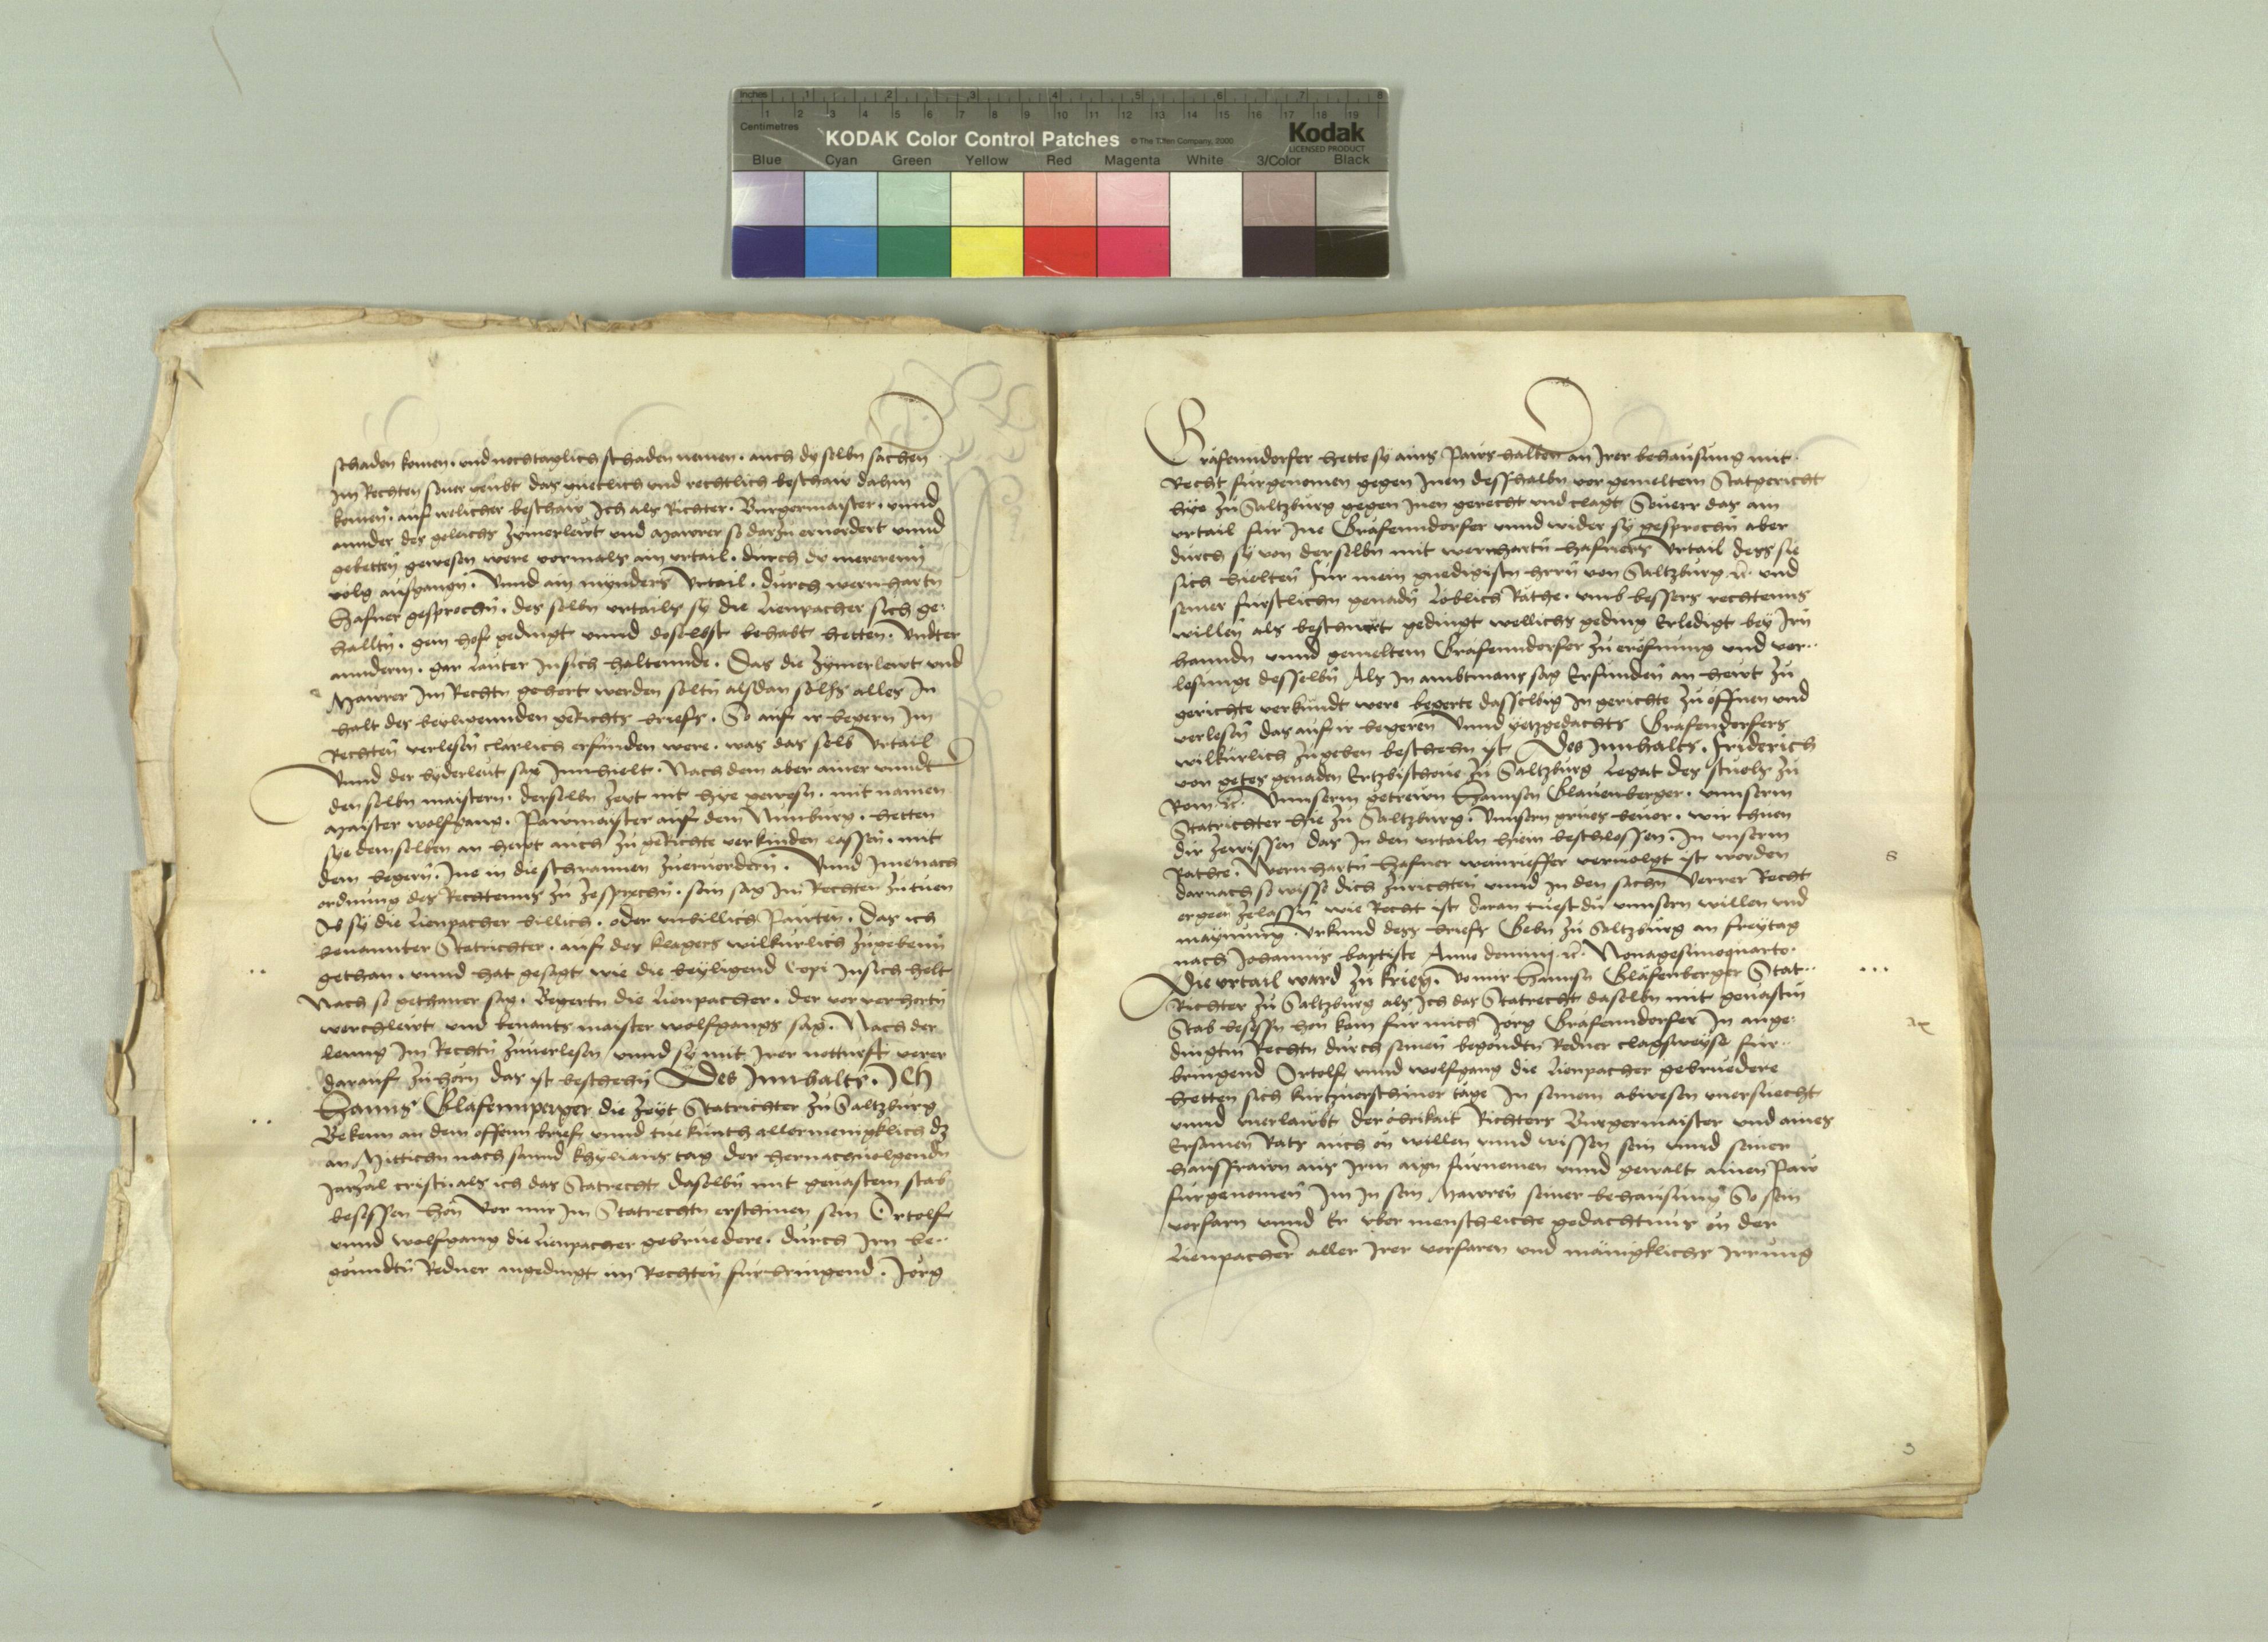 Inches 1 2 3 4 5 6 7 8
Centimetres 1 2 3 4 5 6 7 8 9 10 11 12 13 14 15 16 17 18 19
KODAK Color Control Patches © The Tiffen Company, 2000 Kodak
LICENSED PRODUCT
Blue Cyan Green Yellow Red Magenta White 3/Color Black
schaden komen. und noch taglich schaden nemen. auch dy selbn sachen
Im Rechten souer veubt das guetlich und rechtlich beschaw dahin
komen. auf welicher beschaw Ich als Richter. Burgermaister. unnd
annder des geleichs Zymerlewt und Mawrer so darzu eruordert unnd
gebetten gewesen were vormals ain urtail. durch dy mererenn
volg ausgangn. Unnd ain mynders Urtail. durch wernhartn
Hafner gesprochn. des selbn urtails sy die Lienpacher sich ge-
halltn. gein hof gedingt unnd daselbst behabt hetten. Undter
anndern. gar lauter Insich haltennde. Das die Zymerlewt und
Mawrer Im Rechtn gehort werden soltn alsdan solhs alles In
halt des beyligennden gerichts briefs. So auf ir begern Im
Rechten verlesn clarlich erfunden were. was das selb Urtail
Unnd der byderleut sag Innhielt. Nach dem aber ainer unndt
den selbn maistern. derselbn Zeyt nit hye gewesn. mit namen
Maister wolfgang. Pawmaister auf dem Nunburg. hetten
sye demselben an hewt auch zu gerichte verkunden lassen. mit
dem begern. Ine in die schrannen zueruordern. Unnd Ime nach
ordnung des Rechtenns zu zesprechn. sein sag Im Rechten zutuen
Ob sy die Lienpacher billich. oder unbillich Pawten. Das ich
benannter Statrichter. auf des klagers wilkurlich zugebenn
gethan. unnd hat gesagt wie die beyligend Copi Insich helt
Nach so gethaner sag. Begertn die Lienpacher. der vor verhortn
werchlewt und benants maister wolfgangs sag. Nach der
leung Im Rechtn zuuerlesn unnd sy mit Irer notturft verer
darauf zuhorn das ist beschehn Des Innhalts. Ich
Hanns Glafennperger die Zeyt Statrichter zu Saltzburg
Bekenn an dem offenn brief unnd tue kunth allermenigklich dz
an Mittichn nach sannd kylians tag der hernachuolgendn
Jarzal cristi. als ich das Statrecht daselbn mit gewaltem stab
besessen hon Vor mir Im Statrechtn erschinen sein Ortolf
unnd wolfgang die Lienpacher gebruedere. durch Irn be-
gonndtn Redner angedingt im Rechten furbringend. Jorg
Grafenndorfer hette sy ains Paws halben an Irer behausung mit
Recht furgenomen gegen Inen desshalbn vor gemeltem Statgericht
hye zu Saltzburg gegen Inen gerecht und clagt Souerr das ain
urtail fur Ine Grafenndorfer unnd wider sy gesprochn aber
durch sy von derselbn mit wernhartn Hafners Urtail dess sie
sich hielten fur mein gnedigisten herrn von Saltzburg und
seiner furstlichn genadn loblich Rathe. umb bessers rechtenns
willen als beschwert gedingt wellichs geding Erledigt bey Irn
hanndn unnd gemeltem Grafenndorfer zu erofnung und ver-
lesunge desselbn Als In ambtmans sag Erfunden an hewt zu
gerichte verkundt were begerte dasselbig In gerichte zu offnen und
verlesn das auf ir begeren unnd yetzgedachts Grafendorfers
wilkurlich zugeben beschehn ist Des Innhalts. Friderich
von gotes genaden Ertzbischoue zu Saltzburg Legat des stuels zu
Rom Unnserm getrewn Hannsen Glauenberger. unnserm
Statrichter hie zu Saltzburg. Unnsern grues beuor. wir thuen
dir zewissen das In den urtailn hiein beschlossen. In unserm
Rathe. Wernhartn Hafner weinrieffer veruolgt ist worden
darnach so wisse dich zurichten unnd In den sachn verrer Recht
ergeen zelassn wie Recht ist daran tuest du unnsern willen und
maynung. Urkund dess briefs Gebn zu Saltzburg an freytag
nach Johannis baptiste Anno domini Nonagesimoquarto.
Die urtail ward zu krieg. Vor mir Hannsn Glafenberger Stat-
Richter zu Saltzburg als Ich das Statrecht daselbn mit gewaltn
Stab besessn hon kom fur mich Jorg Grafenndorfer In ange-
dingtn Rechtn durch seinen begondtn Redner clagsweyse fur-
bringend Ortolf unnd wolfgang die Lienpacher gebruedere
hetten sich kurtzuerschiner tage In seinem abwesen unersuecht
unnd unerlawbt der obrikait Richters Burgermaister und aines
Ersamen Rats auch on willen unnd wissen sein unnd seiner
hausfrawn aus Irm aign furnemen unnd gewalt ainen Paw
furgenomen Im In sein Mawrn seiner behausung So sein
vorfarn unnd Er uber menschliche gedachtnus on der
Lienpacher aller Irer vorfaren und mainigklichs Irrung
3